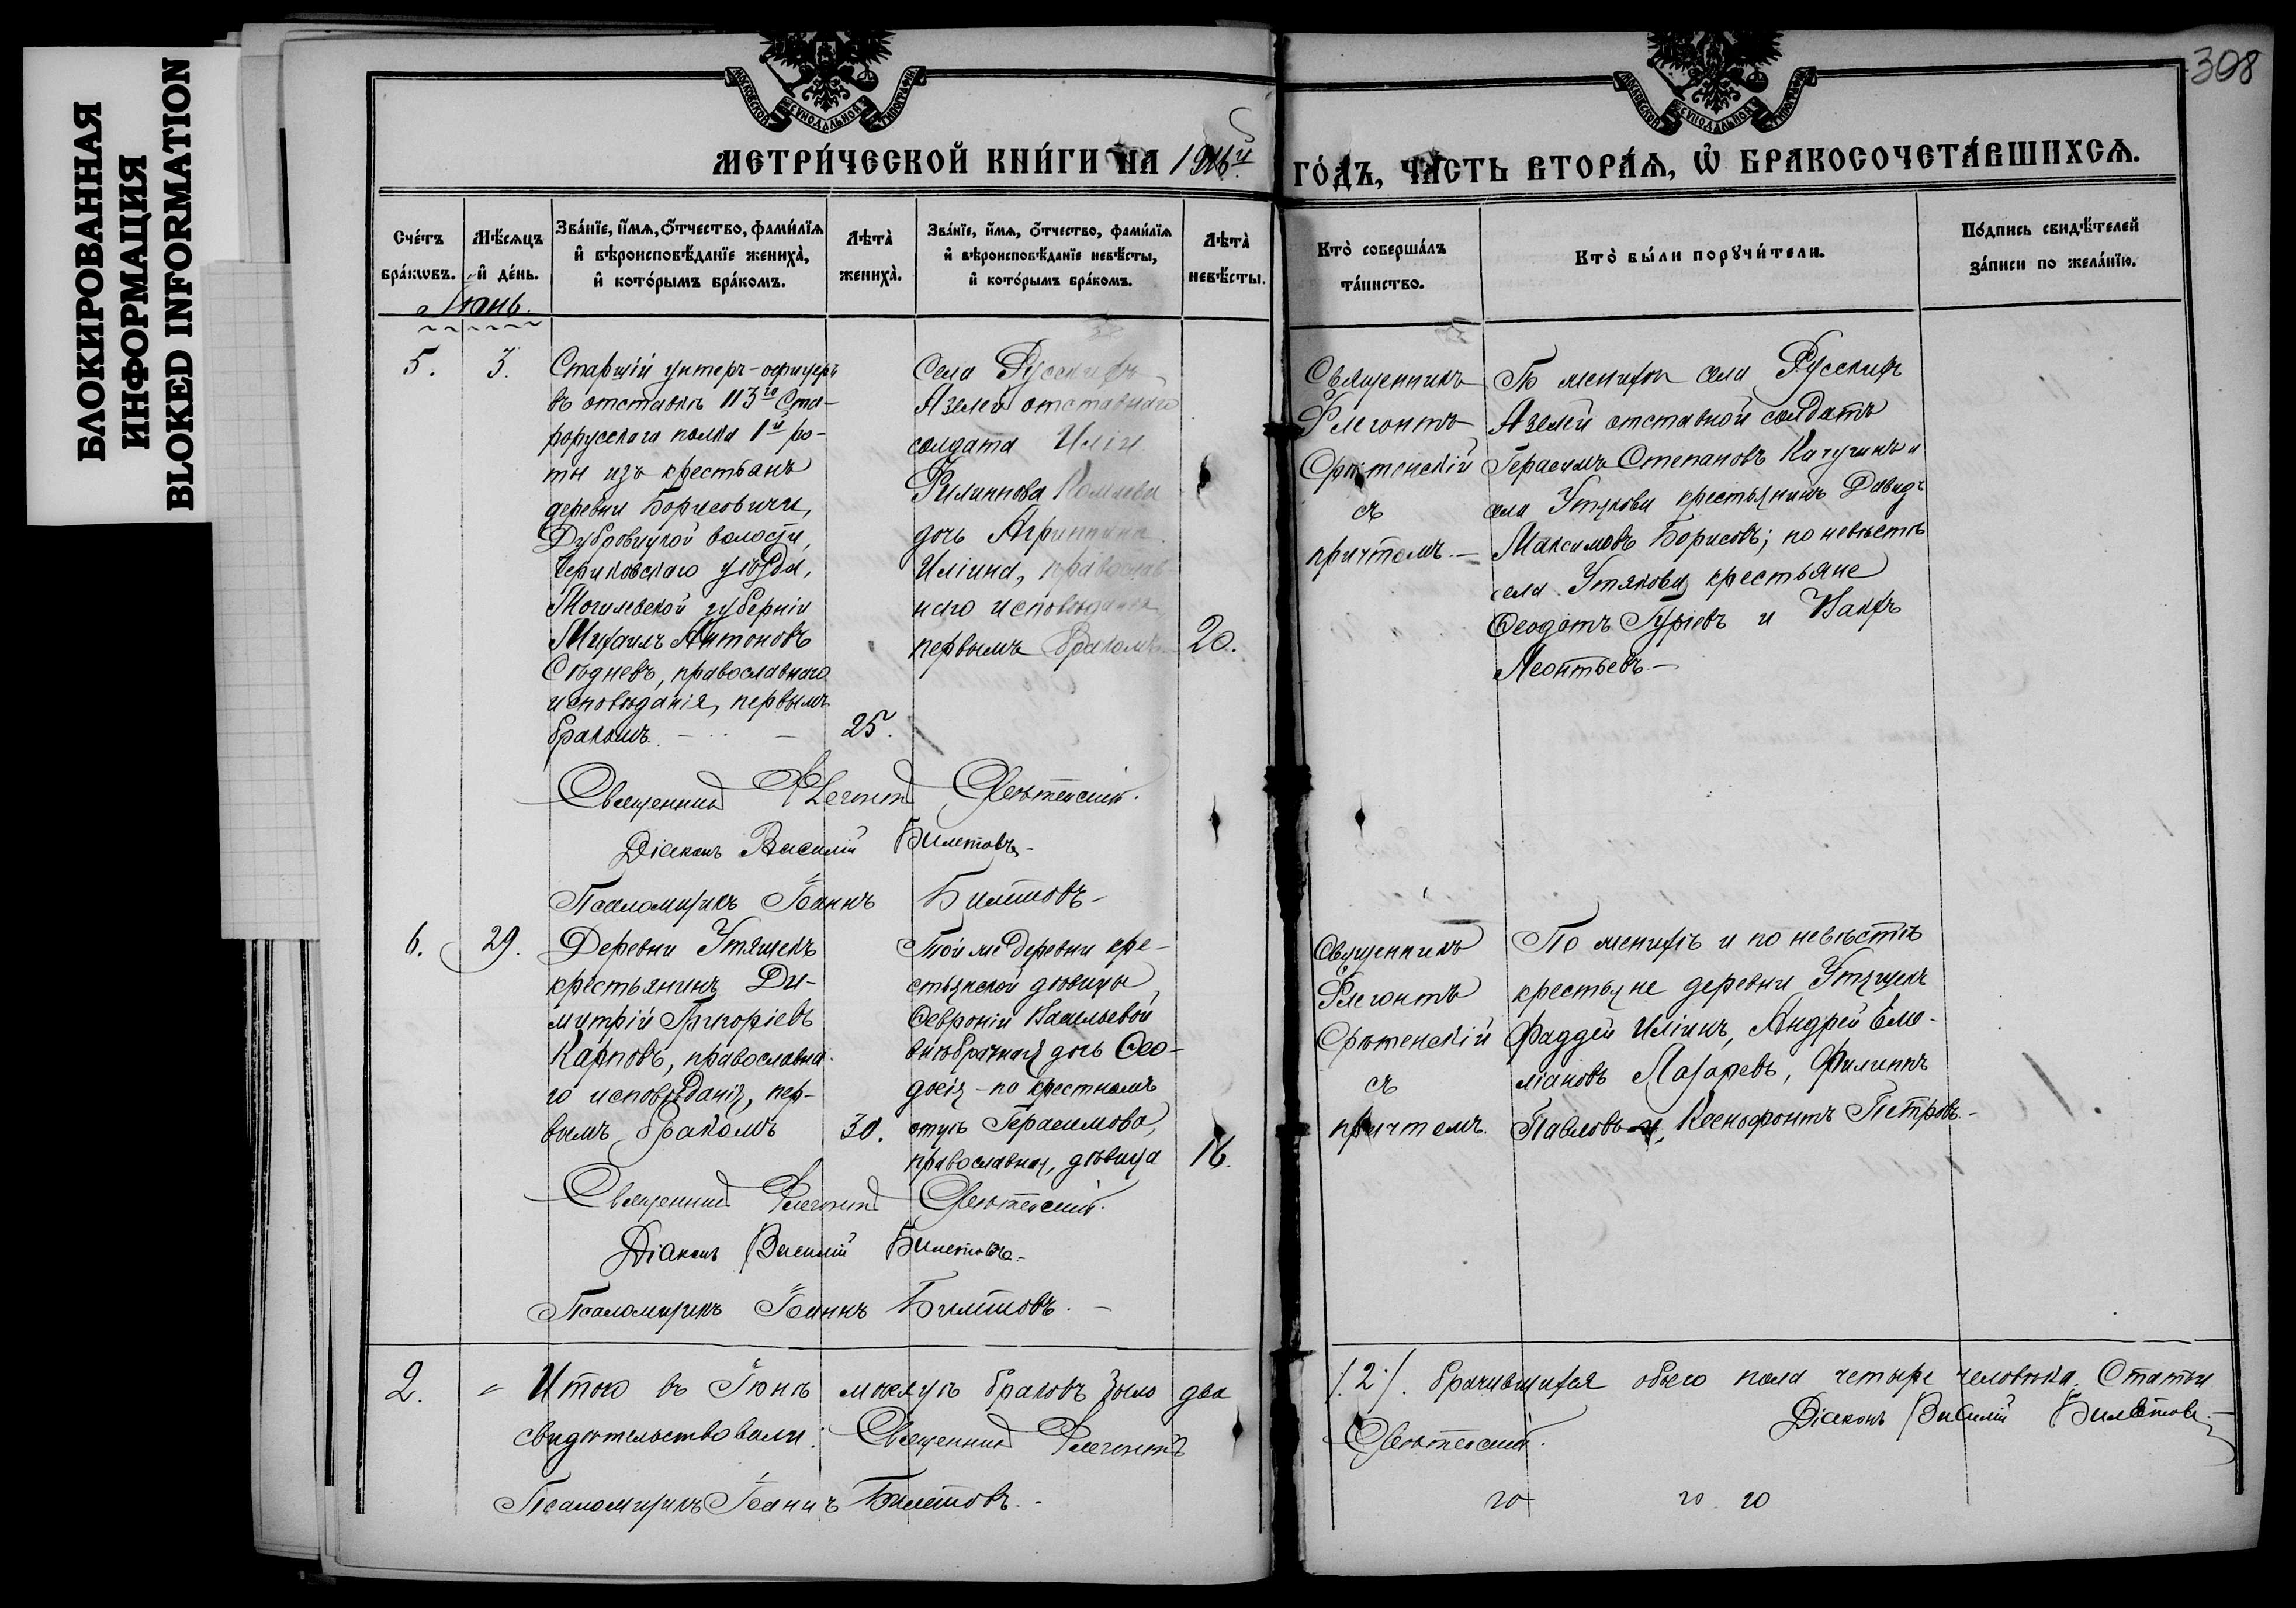 БЛОКИРОВАННАЯ
ИНФОРМАЦИЯ
BLOKED INFORMATION
308
МОСКОВСКОЙ СѴНОДАЛЬНОЙ ТИПОГРАФІИ
МОСКОВСКОЙ СѴНОДАЛЬНОЙ ТИПОГРАФІИ
МЕТРИ́ЧЕСКОЙ КНИ́ГИ НА 1906й ГО́ДЪ, ЧА́СТЬ ВТОРА́Ѧ, Ѿ БРАКОСОЧЕТА́ВШИХСѦ.
Сче́тъ бра́кѡвъ.
Мѣ́сѧцъ и҆ де́нь.
Зва́нїе, и҆́мѧ, ѻ҆́тчество, фами́лїѧ и҆ вѣроисповѣ́данїе жениха̀, и҆ кото́рымъ бра́комъ.
Лѣта̀ жениха̀.
Зва́нїе, и҆́мѧ, ѻ҆́тчество, фами́лїѧ и҆ вѣроисповѣ́данїе невѣ́сты, и҆ кото́рымъ бра́комъ.
Лѣта̀ невѣ́сты.
Кто̀ соверша́лъ та́инство.
Кто̀ бы́ли порꙋчи́тели.
По́дпись свидѣ́телей за́писи по жела́нїю.
Іюнь.
5.
3.
Старшій унтеръ-офицеръ
въ отставкѣ 113го Ста-
рорусскаго полка 1й ро-
ты изъ крестьянъ
деревни Борисовичи,
Дубровицкой волости,
Чериковскаго уѣзда,
Могилевской губерніи
Михаилъ Антоновъ
Сѣдневъ, православнаго
исповѣданія, первымъ
бракомъ
25.
Села Русскихъ
Азелей отставнаго
солдата Иліи
Филиппова
дочь Агриппина
Иліина, православ-
наго исповѣданія
первымъ бракомъ
20.
Священникъ
Флегонтъ
Срѣтенскій
съ
причтомъ.
По женихѣ села Русскихъ
Азелей отставной солдатъ
Герасимъ Степановъ Качугинъ и
села Утякова крестьянинъ Давидъ
Максимовъ Борисовъ; по невѣстѣ
села Утякова крестьяне
Ѳеодотъ Гуріевъ и Іаковъ
Леонтьевъ.
Священникъ Флегонтъ Срѣтенскій.
Діаконъ Василій Билетовъ.
Псаломщикъ Іоаннъ Билетовъ.
6.
29.
Деревни Утящекъ
крестьянинъ Ди-
митрій Григоріевъ
Карповъ, православна-
го исповѣданія, пер-
вымъ бракомъ
30.
Той же деревни кре-
стьянской дѣвицы
Ѳевроніи Васильевой
внѣбрачная дочь Ѳео-
досія - по крестному
отцѣ Герасимова,
православная, дѣвица
16.
Священникъ
Флегонтъ
Срѣтенскій
съ
причтомъ.
По женихѣ и по невѣстѣ
крестьяне деревни Утящекъ
Фаддей Иліинъ, Андрей Еми-
ліановъ Лазаревъ, Филиппъ
Павловъ и Ксенофонтъ Петровъ.
Священникъ Флегонтъ Срѣтенскій.
Діаконъ Василій Билетовъ.
Псаломщикъ Іоаннъ Билетовъ.
2. " Итого въ Іюнѣ мѣсяцѣ браковъ было два /.2./. брачившихся обоего пола четыре человѣка. Статьи
свидѣтельствовали: Священникъ Флегонтъ Срѣтенскій. Діаконъ Василій Билетовъ.
Псаломщикъ Іоаннъ Билетовъ.